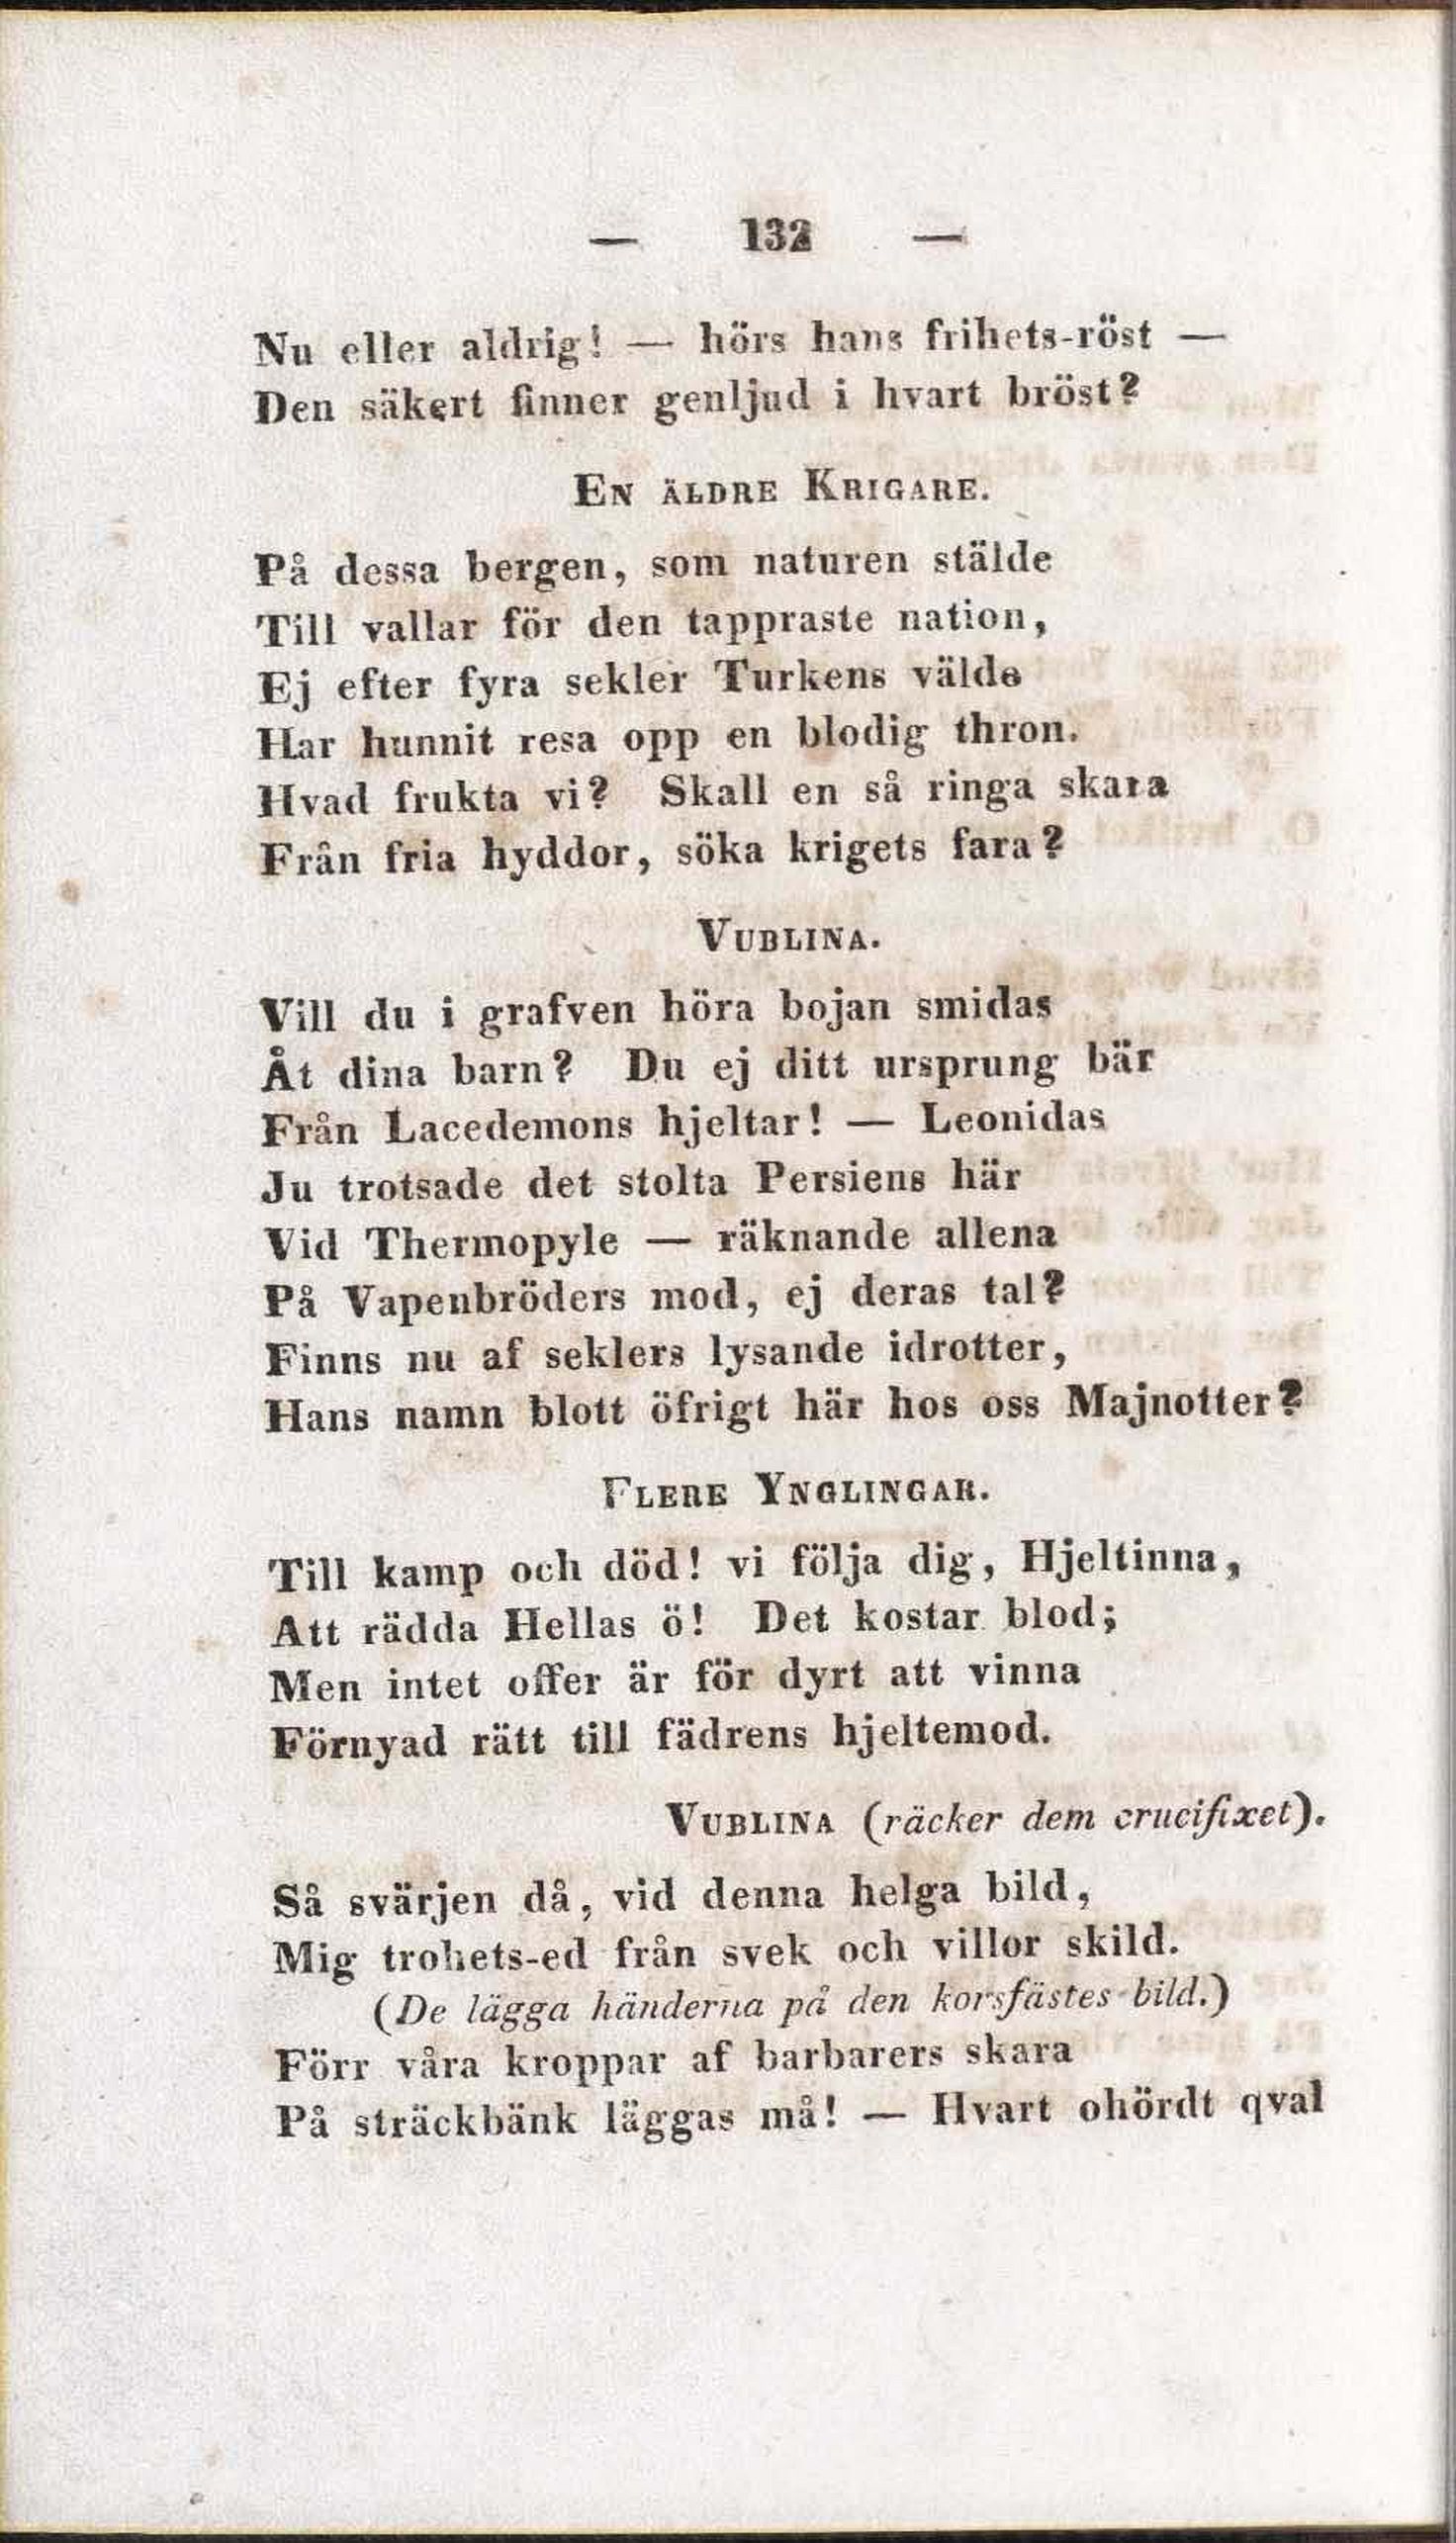 — 132 —
Nu eller aldrig! — hörs hans frihets-röst —
Den säkert finner genljud i hvart bröst?
EN ÄLDRE KRIGARE.
På dessa bergen, som naturen stälde
Till vallar för den tappraste nation,
Ej efter fyra sekler Turkens välde
Har hunnit resa opp en blodig thron.
Hvad frukta vi? Skall en så ringa skara
Från fria hyddor, söka krigets fara?
VUBLINA.
Vill du i grafven höra bojan smidas
Åt dina barn? Du ej ditt ursprung bär
Från Lacedemons hjeltar! — Leonidas
Ju trotsade det stolta Persiens här
Vid Thermopyle — räknande allena
På Vapenbröders mod, ej deras tal?
Finns nu af seklers lysande idrotter,
Hans namn blott öfrigt här hos oss Majnotter?
FLERE YNGLINGAR.
Till kamp och död! vi följa dig, Hjeltinna,
Att rädda Hellas ö! Det kostar blod;
Men intet offer är för dyrt att vinna
Förnyad rätt till fädrens hjeltemod.
VUBLINA (räcker dem crucifixet).
Så svärjen då, vid denna helga bild,
Mig trohets-ed från svek och villor skild.
(De lägga händerna på den korsfästes bild.)
Förr våra kroppar af barbarers skara
På sträckbänk läggas må! — Hvart ohördt qval